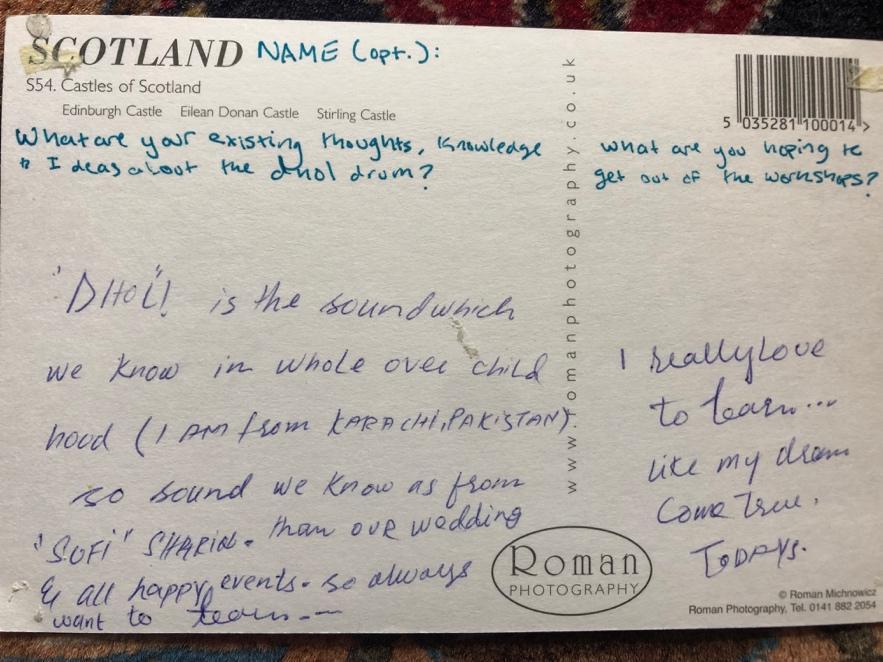 SCOTLAND NAME (opt.):
S54. Castles of Scotland
Edinburgh Castle Eilean Donan Castle Stirling Castle
5 035281 100014 >
What are your existing thoughts, knowledge
+ Ideas about the dhol drum?
what are you hoping to
get out of the workshops?
www.romanphotography.co.uk
"DHOL"! is the sound which
we know in whole over child
hood (I AM from KARACHI, PAKISTAN)
so sound we know as from
"SUFI" SHARIN. than our wedding
& all happy events. so always
want to learn...
I really love
to learn...
like my dream
come true.
TODAYS.
Roman
PHOTOGRAPHY
© Roman Michnowicz
Roman Photography, Tel. 0141 882 2054